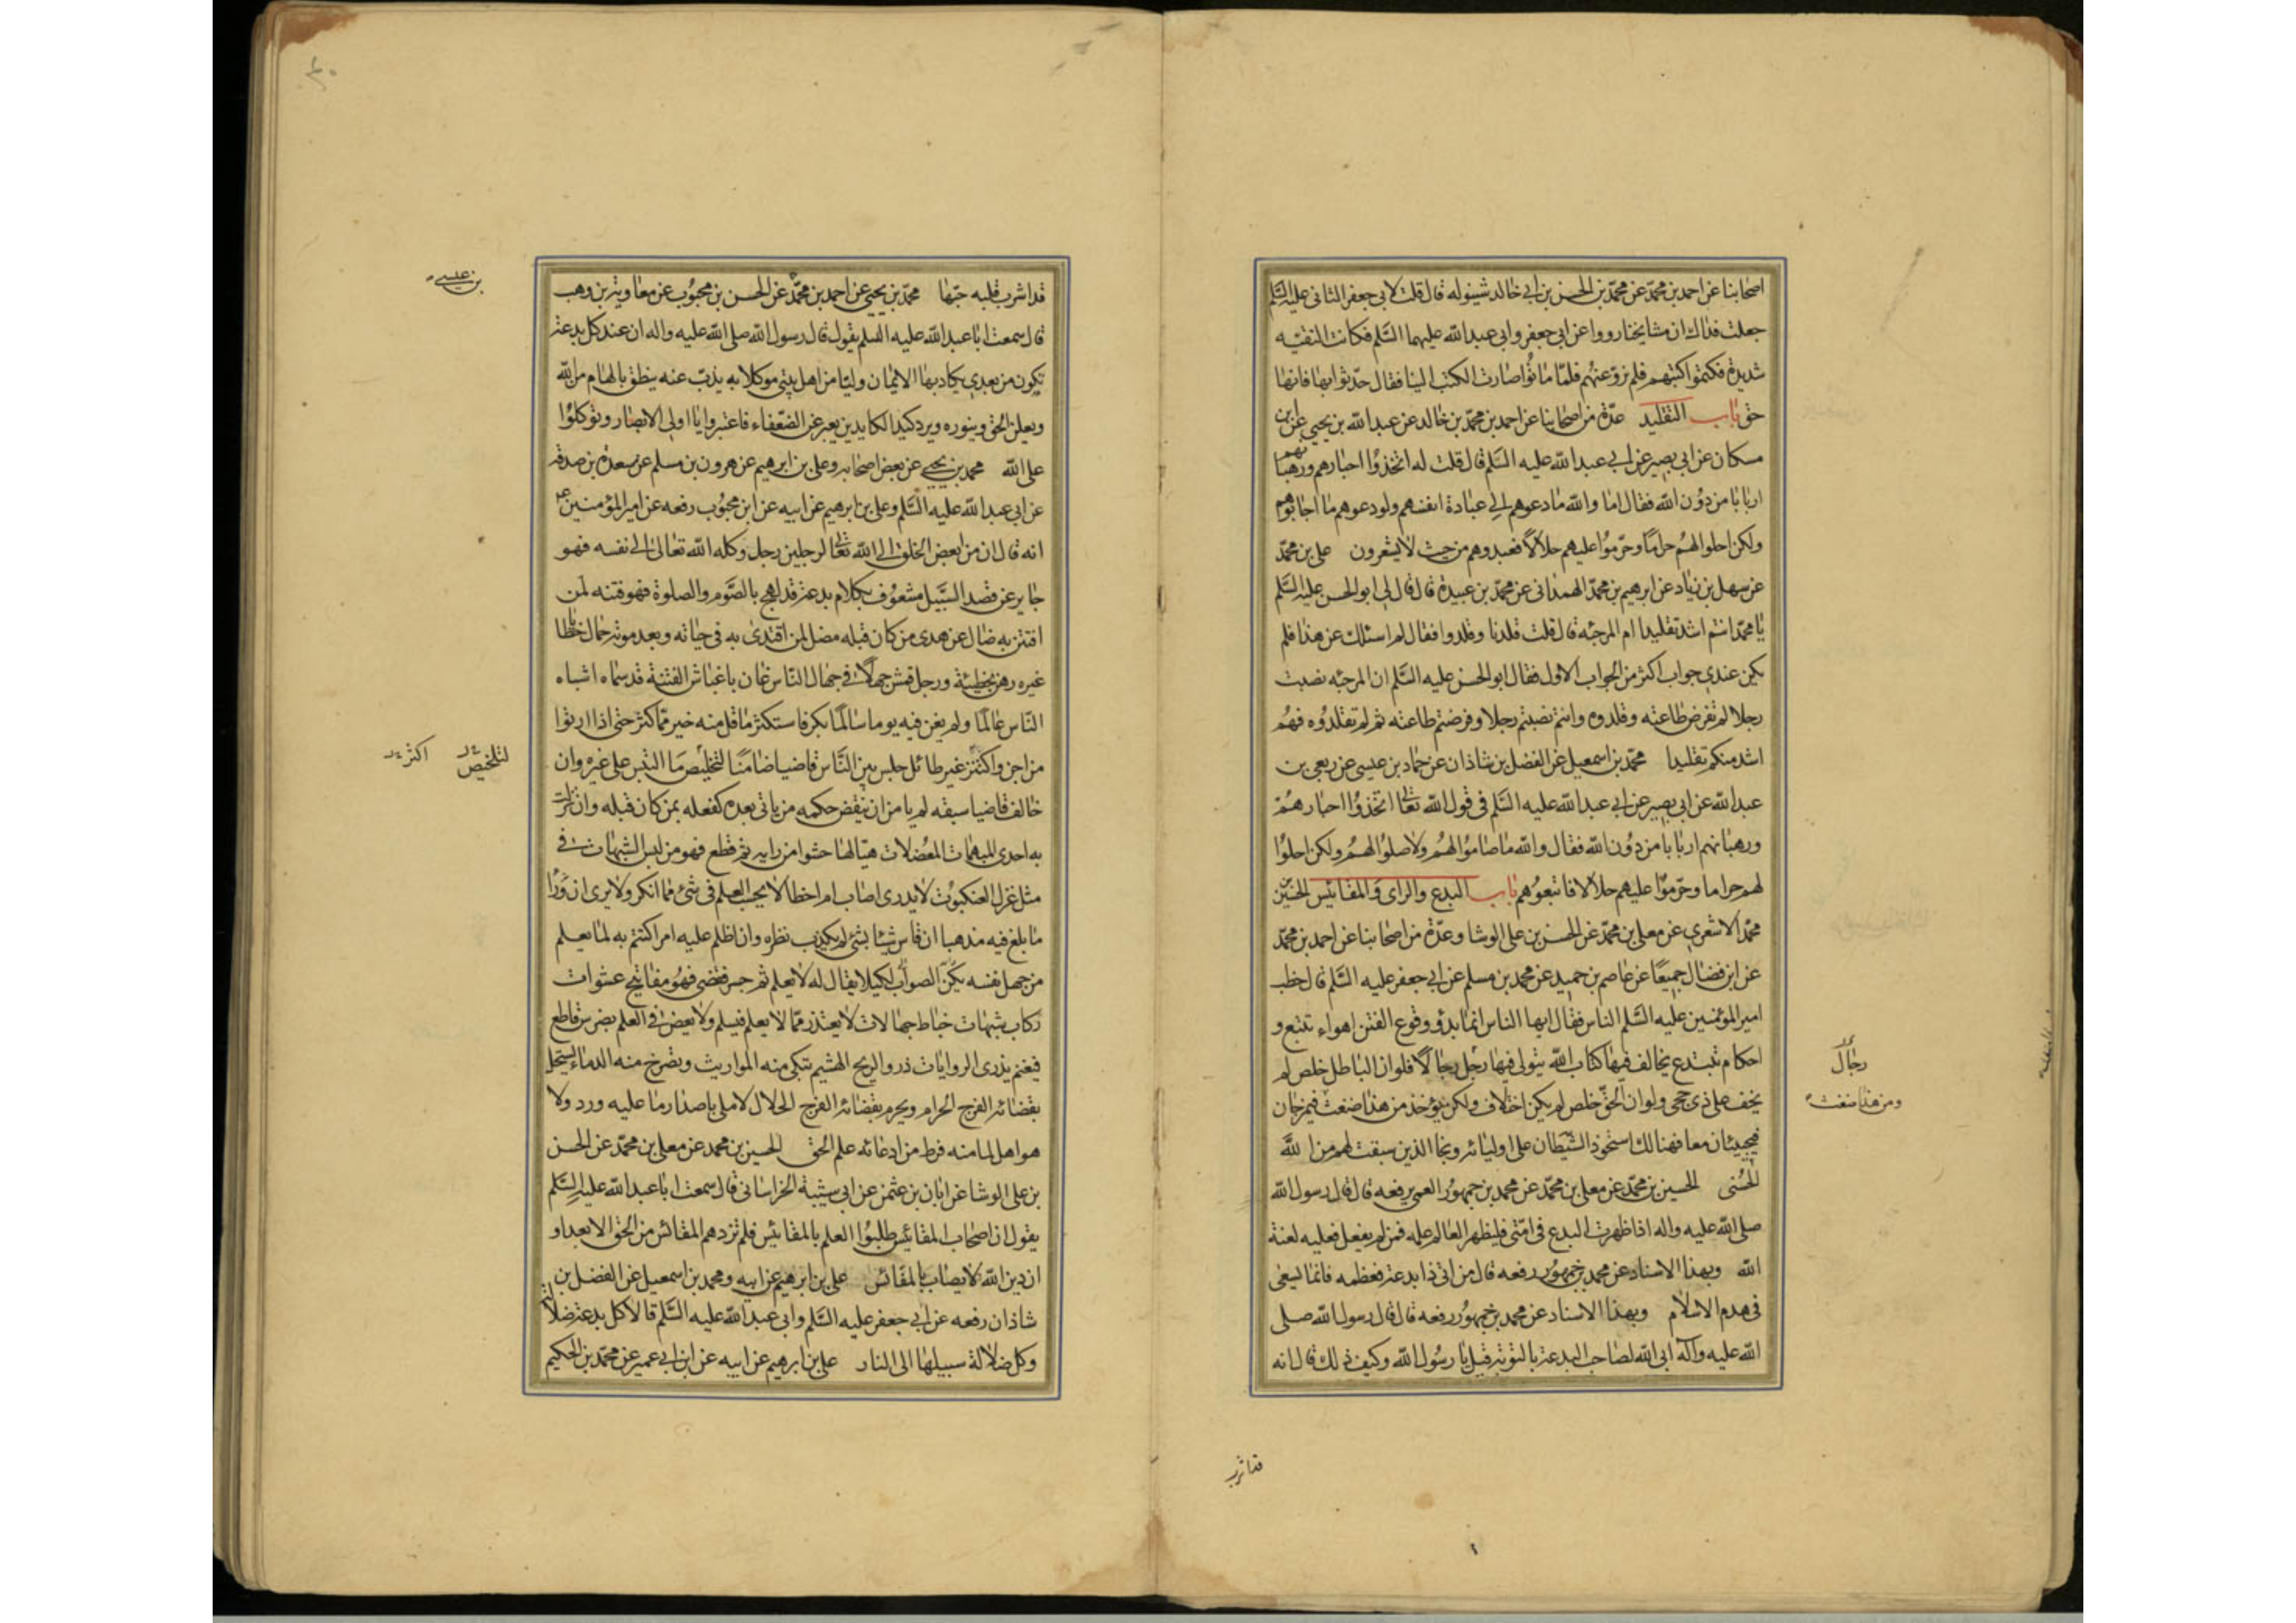 اصحابنا عن احمد بن محمد عن محمد بن الحسن بن ابى خالد شينوله قال قلت لابى جعفر الثانى عليه السلم
جعلت فداك ان مشايخنا رووا عن ابى جعفر وابى عبد الله عليهما السلم فكانت التقيه
شديدة فكتموا كتبهم فلم ترو عنهم فلما ماتوا صارت الكتب الينا فقال حدثوا بها فانها
حق باب التقليد عدة من اصحابنا عن احمد بن محمد بن خالد عن عبد الله بن يحيى عن ابن
مسكان عن ابى بصير عن ابى عبد الله عليه السلم قال قلت له اتخذوا احبارهم ورهبانهم
اربابا من دون الله فقال اما والله ما دعوهم الى عبادة انفسهم ولو دعوهم ما اجابوهم
ولكن احلوا لهم حراما وحرموا عليهم حلالا فعبدوهم من حيث لا يشعرون على بن محمد
عن سهل بن زياد عن ابرهيم بن محمد الهمدانى عن محمد بن عبيدة قال قال لى ابو الحسن عليه السلم
يا محمد انتم اشد تقليدا ام المرجئه قال قلت قلدنا وقلدوا فقال لم اسئلك عن هذا فلم
يكن عندى جواب اكثر من الجواب الاول فقال ابو الحسن عليه السلم ان المرجئه نصبت
رجلا لم تفرض طاعته وقلدوه وانتم نصبتم رجلا وفرضتم طاعته ثم لم تقلدوه فهم
اشد منكم تقليدا محمد بن اسمعيل عن الفضل بن شاذان عن حماد بن عيسى عن ربعى بن
عبد الله عن ابى بصير عن ابى عبد الله عليه السلم فى قول الله تعالى اتخذوا احبارهم
ورهبانهم اربابا من دون الله فقال والله ما صاموا لهم ولا صلوا لهم ولكن احلوا
لهم حراما وحرموا عليهم حلالا فاتبعوهم باب البدع والراى والمقائيس الحسين بن
محمد الاشعرى عن معلى بن محمد عن الحسن بن على الوشا وعدة من اصحابنا عن احمد بن محمد
عن ابن فضال جميعا عن عاصم بن حميد عن محمد بن مسلم عن ابى جعفر عليه السلم قال خطب
امير المؤمنين عليه السلم الناس فقال ايها الناس انما بدؤ وقوع الفتن اهواء تتبع و
احكام تبتدع يخالف فيها كتاب الله يتولى فيها رجل رجالا فلو ان الباطل خلص لم
يخف على ذى حجى ولو ان الحق خلص لم يكن اختلاف ولكن يؤخذ من هذا ضغث فيمزجان
فيجيئان معا فهنالك استحوذ الشيطان على اوليائه ونجا الذين سبقت لهم من الله
الحسنى الحسين بن محمد عن معلى بن محمد عن محمد بن جمهور العمى يرفعه قال قال رسول الله
صلى الله عليه واله اذا ظهرت البدع فى امتى فليظهر العالم علمه فمن لم يفعل فعليه لعنة
الله وبهذا الاسناد عن محمد بن جمهور رفعه قال من اتى ذا بدعة فعظمه فانما يسعى
فى هدم الاسلام وبهذا الاسناد عن محمد بن جمهور رفعه قال قال رسول الله صلى
الله عليه وآله ابى الله لصاحب البدعة بالتوبة قيل يا رسول الله وكيف ذلك قال انه
رجال
ومن هذا ضغث
قد اشرب
قد اشرب قلبه حبها محمد بن يحيى عن احمد بن محمد عن الحسن بن محبوب عن معاوية بن وهب
قال سمعت ابا عبد الله عليه السلم يقول قال رسول الله صلى الله عليه واله ان عند كل بدعة
تكون من بعدى يكاد بها الايمان وليا من اهل بيتى موكلا به يذب عنه ينطق بالهام من الله
ويعلن الحق وينوره ويرد كيد الكايدين يعبر عن الضعفاء فاعتبروا يا اولى الابصار وتوكلوا
على الله محمد بن يحيى عن بعض اصحابه وعلى بن ابرهيم عن هرون بن مسلم عن مسعدة بن صدقة
عن ابى عبد الله عليه السلم وعلى بن ابرهيم عن ابيه عن ابن محبوب رفعه عن امير المؤمنين ع
انه قال ان من ابغض الخلق الى الله تعالى لرجلين رجل وكله الله تعالى الى نفسه فهو
جاير عن قصد السبيل مشعوف بكلام بدعة قد لهج بالصوم والصلوة فهو فتنه لمن
افتتن به ضال عن هدى من كان قبله مضل لمن اقتدى به فى حياته وبعد موته حمال خطايا
غيره رهن بخطيئة ورجل قمش جهلا فى جهال الناس عان باغباش الفتنة قد سماه اشباه
الناس عالما ولم يغن فيه يوما سالما بكر فاستكثر ما قل منه خير مما كثر حتى اذا ارتوا
من اجن واكتنز غير طائل جلس بين الناس قاضيا ضامنا لتخليص ما التبس على غيره وان
خالف قاضيا سبقه لم يامن ان ينقض حكمه من ياتى بعده كفعله بمن كان قبله وان نزلت
به احدى المبهمات المعضلات هيا لها حشوا من رايه ثم قطع فهو من لبس الشبهات فى
مثل غزل العنكبوت لا يدرى اصاب ام اخطا لا يحسب العلم فى شئ مما انكر ولا يرى ان ورا
ما بلغ فيه مذهبا ان قاس شيئا بشئ لم يكذب نظره وان اظلم عليه امر اكتتم به لما يعلم
من جهل نفسه لكيلا يقال له لا يعلم ثم جسر فقضى فهو مفاتيح عشوات
ركاب شبهات خباط جهالات لا يعتذر مما لا يعلم فيسلم ولا يعض فى العلم بضرس قاطع
فيغنم يذرى الروايات ذرو الريح الهشيم تبكى منه المواريث وتصرخ منه الدماء يستحل
بقضائه الفرج الحرام ويحرم بقضائه الفرج الحلال لا ملى باصدار ما عليه ورد ولا
هو اهل لما منه فرط من ادعائه علم الحق الحسين بن محمد عن معلى بن محمد عن الحسن
بن على الوشا عن ابان بن عثمن عن ابى شيبة الخراسانى قال سمعت ابا عبد الله عليه السلم
يقول ان اصحاب المقائيس طلبوا العلم بالمقائيس فلم تزدهم المقائس من الحق الا بعدا و
ان دين الله لا يصاب بالمقائس على بن ابرهيم عن ابيه ومحمد بن اسمعيل عن الفضل بن
شاذان رفعه عن ابى جعفر عليه السلم وابى عبد الله عليه السلم قالا كل بدعة ضلالة
وكل ضلالة سبيلها الى النار على بن ابرهيم عن ابيه عن ابن ابى عمير عن محمد بن الحكيم
بن عيسى
لتلخيص
اكثر